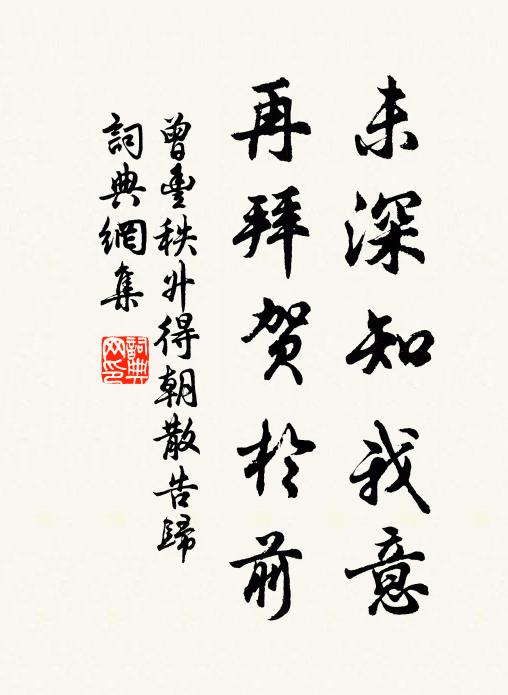 未深知我意
再拜賀於前
曾豐秩外得朝散告歸
詞典網集
詞典網印